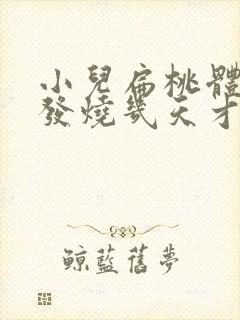 小兒扁桃體
發燒幾天才
鯨藍舊夢